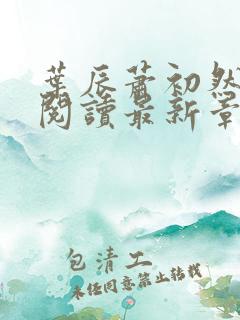 葉辰蕭初然
閱讀最新章
包清工
未經同意禁止轉載